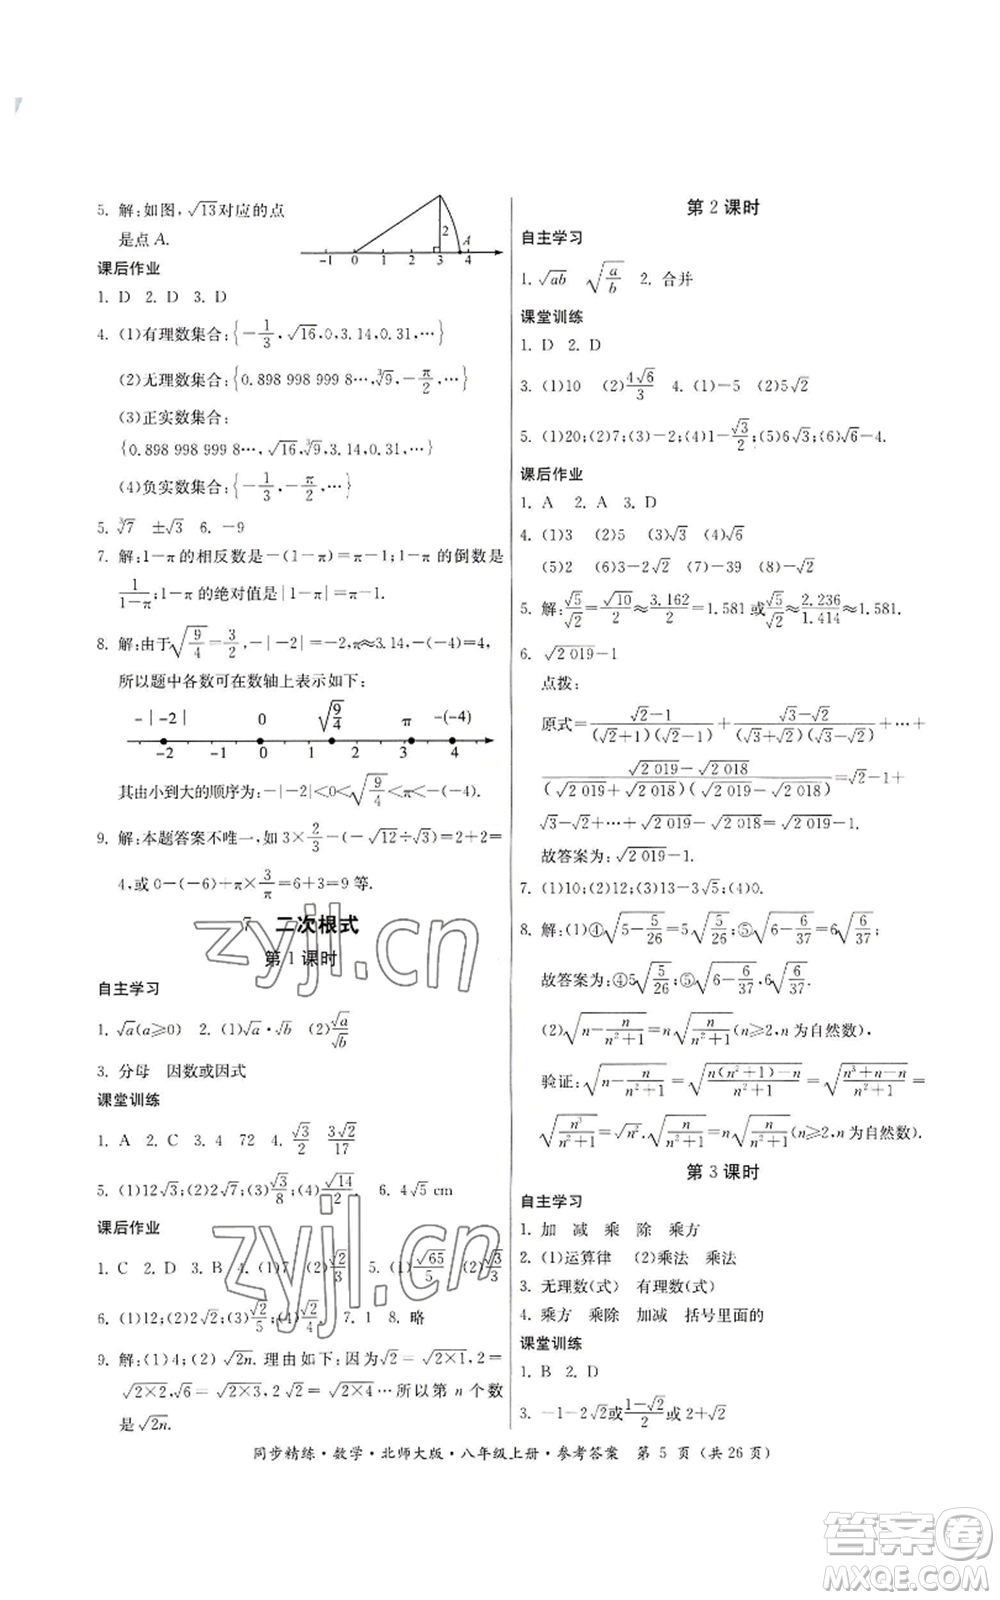 5. 解:如图,√13对应的点
是点 A.
2 A
-1 0 1 2 3 4
课后作业
1. D 2. D 3. D
4. (1)有理数集合:{-1/3,√16,0,3.14,0.31,…}
(2)无理数集合:{0.898 998 999 8…,∛9,-π/2,…}
(3)正实数集合:
{0.898 998 999 8…,√16,∛9,3.14,0.31,…}
(4)负实数集合:{-1/3,-π/2,…}
5. ∛7 ±√3 6. -9
7. 解:1-π的相反数是-(1-π)=π-1;1-π的倒数是
1/(1-π);1-π的绝对值是|1-π|=π-1.
8. 解:由于√(9/4)=3/2,-|-2|=-2,π≈3.14,-(-4)=4,
所以题中各数可在数轴上表示如下:
-|-2| 0 √(9/4) π -(-4)
-2 -1 0 1 2 3 4
其由小到大的顺序为:-|-2|<0<√(9/4)<π<-(-4).
9. 解:本题答案不唯一,如 3×2/3-(-√12÷√3)=2+2=
4,或 0-(-6)+π×3/π=6+3=9 等.
7 二次根式
第 1 课时
自主学习
1. √a(a≥0) 2. (1)√a·√b (2)√a/√b
3. 分母 因数或因式
课堂训练
1. A 2. C 3. 4 72 4. √3/2 3√2/17
5. (1)12√3;(2)2√7;(3)√3/8;(4)√14/2 6. 4√5 cm
课后作业
1. C 2. D 3. B 4. (1)7 (2)√2/3 5. (1)√65/5 (2)√3/3
6. (1)12;(2)2√2;(3)√2/5;(4)√2/4 7. 1 8. 略
9. 解:(1)4;(2)√2n. 理由如下:因为√2=√2×1,2=
√2×2,√6=√2×3,2√2=√2×4…所以第 n 个数
是√2n.
第 2 课时
自主学习
1. √ab √(a/b) 2. 合并
课堂训练
1. D 2. D
3. (1)10 (2)4√6/3 4. (1)-5 (2)5√2
5. (1)20;(2)7;(3)-2;(4)1-√3/2;(5)6√3;(6)√6-4.
课后作业
1. A 2. A 3. D
4. (1)3 (2)5 (3)√3 (4)√6
(5)2 (6)3-2√2 (7)-39 (8)-√2
5. 解:√5/√2=√10/2≈3.162/2=1.581 或√5/√2≈2.236/1.414≈1.581.
6. √2 019-1
点拨:
原式=(√2-1)/((√2+1)(√2-1))+(√3-√2)/((√3+√2)(√3-√2))+…+
(√2 019-√2 018)/((√2 019+√2 018)(√2 019-√2 018))=√2-1+
√3-√2+…+√2 019-√2 018=√2 019-1.
故答案为:√2 019-1.
7. (1)10;(2)12;(3)13-3√5;(4)0.
8. 解:(1)④√(5-5/26)=5√(5/26);⑤√(6-6/37)=6√(6/37);
故答案为:④5√(5/26);⑤√(6-6/37),6√(6/37).
(2)√(n-n/(n²+1))=n√(n/(n²+1))(n≥2,n 为自然数),
验证:√(n-n/(n²+1))=√((n(n²+1)-n)/(n²+1))=√((n³+n-n)/(n²+1))=
√(n³/(n²+1))=√n²·√(n/(n²+1))=n√(n/(n²+1))(n≥2,n 为自然数).
第 3 课时
自主学习
1. 加 减 乘 除 乘方
2. (1)运算律 (2)乘法 乘法
3. 无理数(式) 有理数(式)
4. 乘方 乘除 加减 括号里面的
课堂训练
1. B 2. D
3. -1-2√2或(1-√2)/2或2+√2
同步精练·数学·北师大版·八年级上册·参考答案 第 5 页(共 26 页)
zyjl.cn
zyjl.cn
答案圈
MXQE.COM